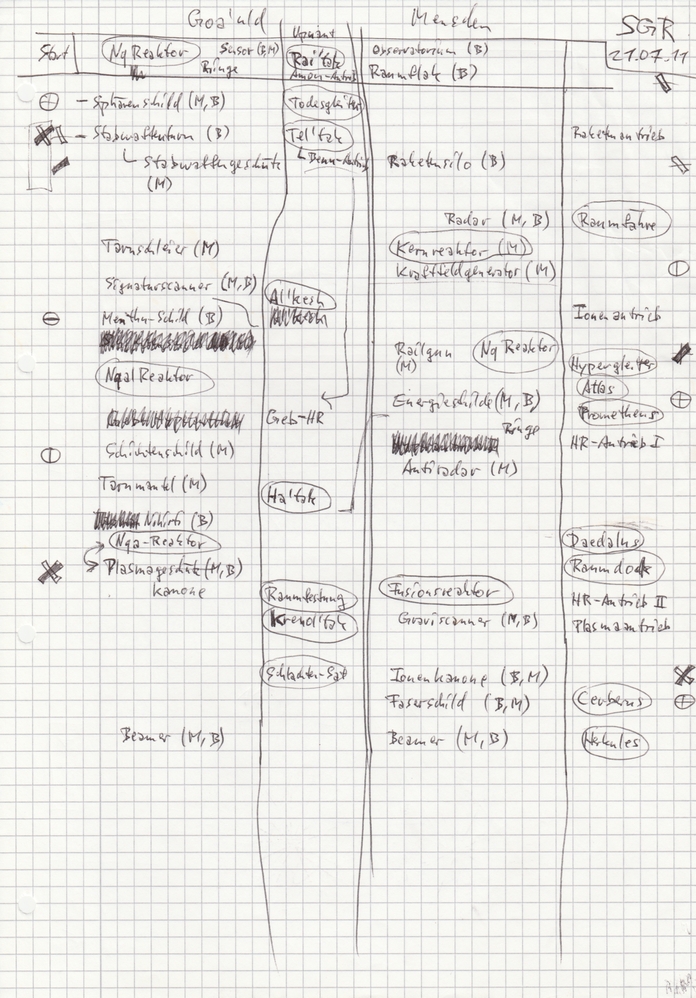 Goa'uld
Menschen
SGR
21.07.11
Start
Nq Reaktor
Sensor (B,M)
Ringe
Rai'tak
Amun-Antrieb
Observatorium (B)
Raumflak (B)
– Sphärenschild (M, B)
Todesgleiter
– Stabwaffenturm (B)
Tel'tak
Raketenantrieb
Stabwaffengeschütz
(M)
Benu-Antrieb
Raketensilo (B)
Radar (M, B)
Raumfähre
Tarnschleier (M)
Kernreaktor (M)
Kraftfeldgenerator (M)
Signaturscanner (M, B)
Al'kesh
Menthu-Schild (B)
Ionenantrieb
Railgun
(M)
Nq Reaktor
Hypergleiter
Nqal Reaktor
Atlas
Energieschilde (M, B)
Prometheus
Greb-HR
Ringe
HR-Antrieb I
Schichtenschild (M)
Antiradar (M)
Tarnmantel (M)
Ha'tak
Nihirti (B)
Nqa-Reaktor
Daedalus
Plasmageschütz (M, B)
kanone
Raumdock
Raumfestung
Fusionsreaktor
HR-Antrieb II
Graviscanner (M, B)
Plasmaantrieb
Schlachten-Sat
Ionenkanone (B, M)
Faserschild (B, M)
Cerberus
Beamer (M, B)
Beamer (M, B)
Herkules